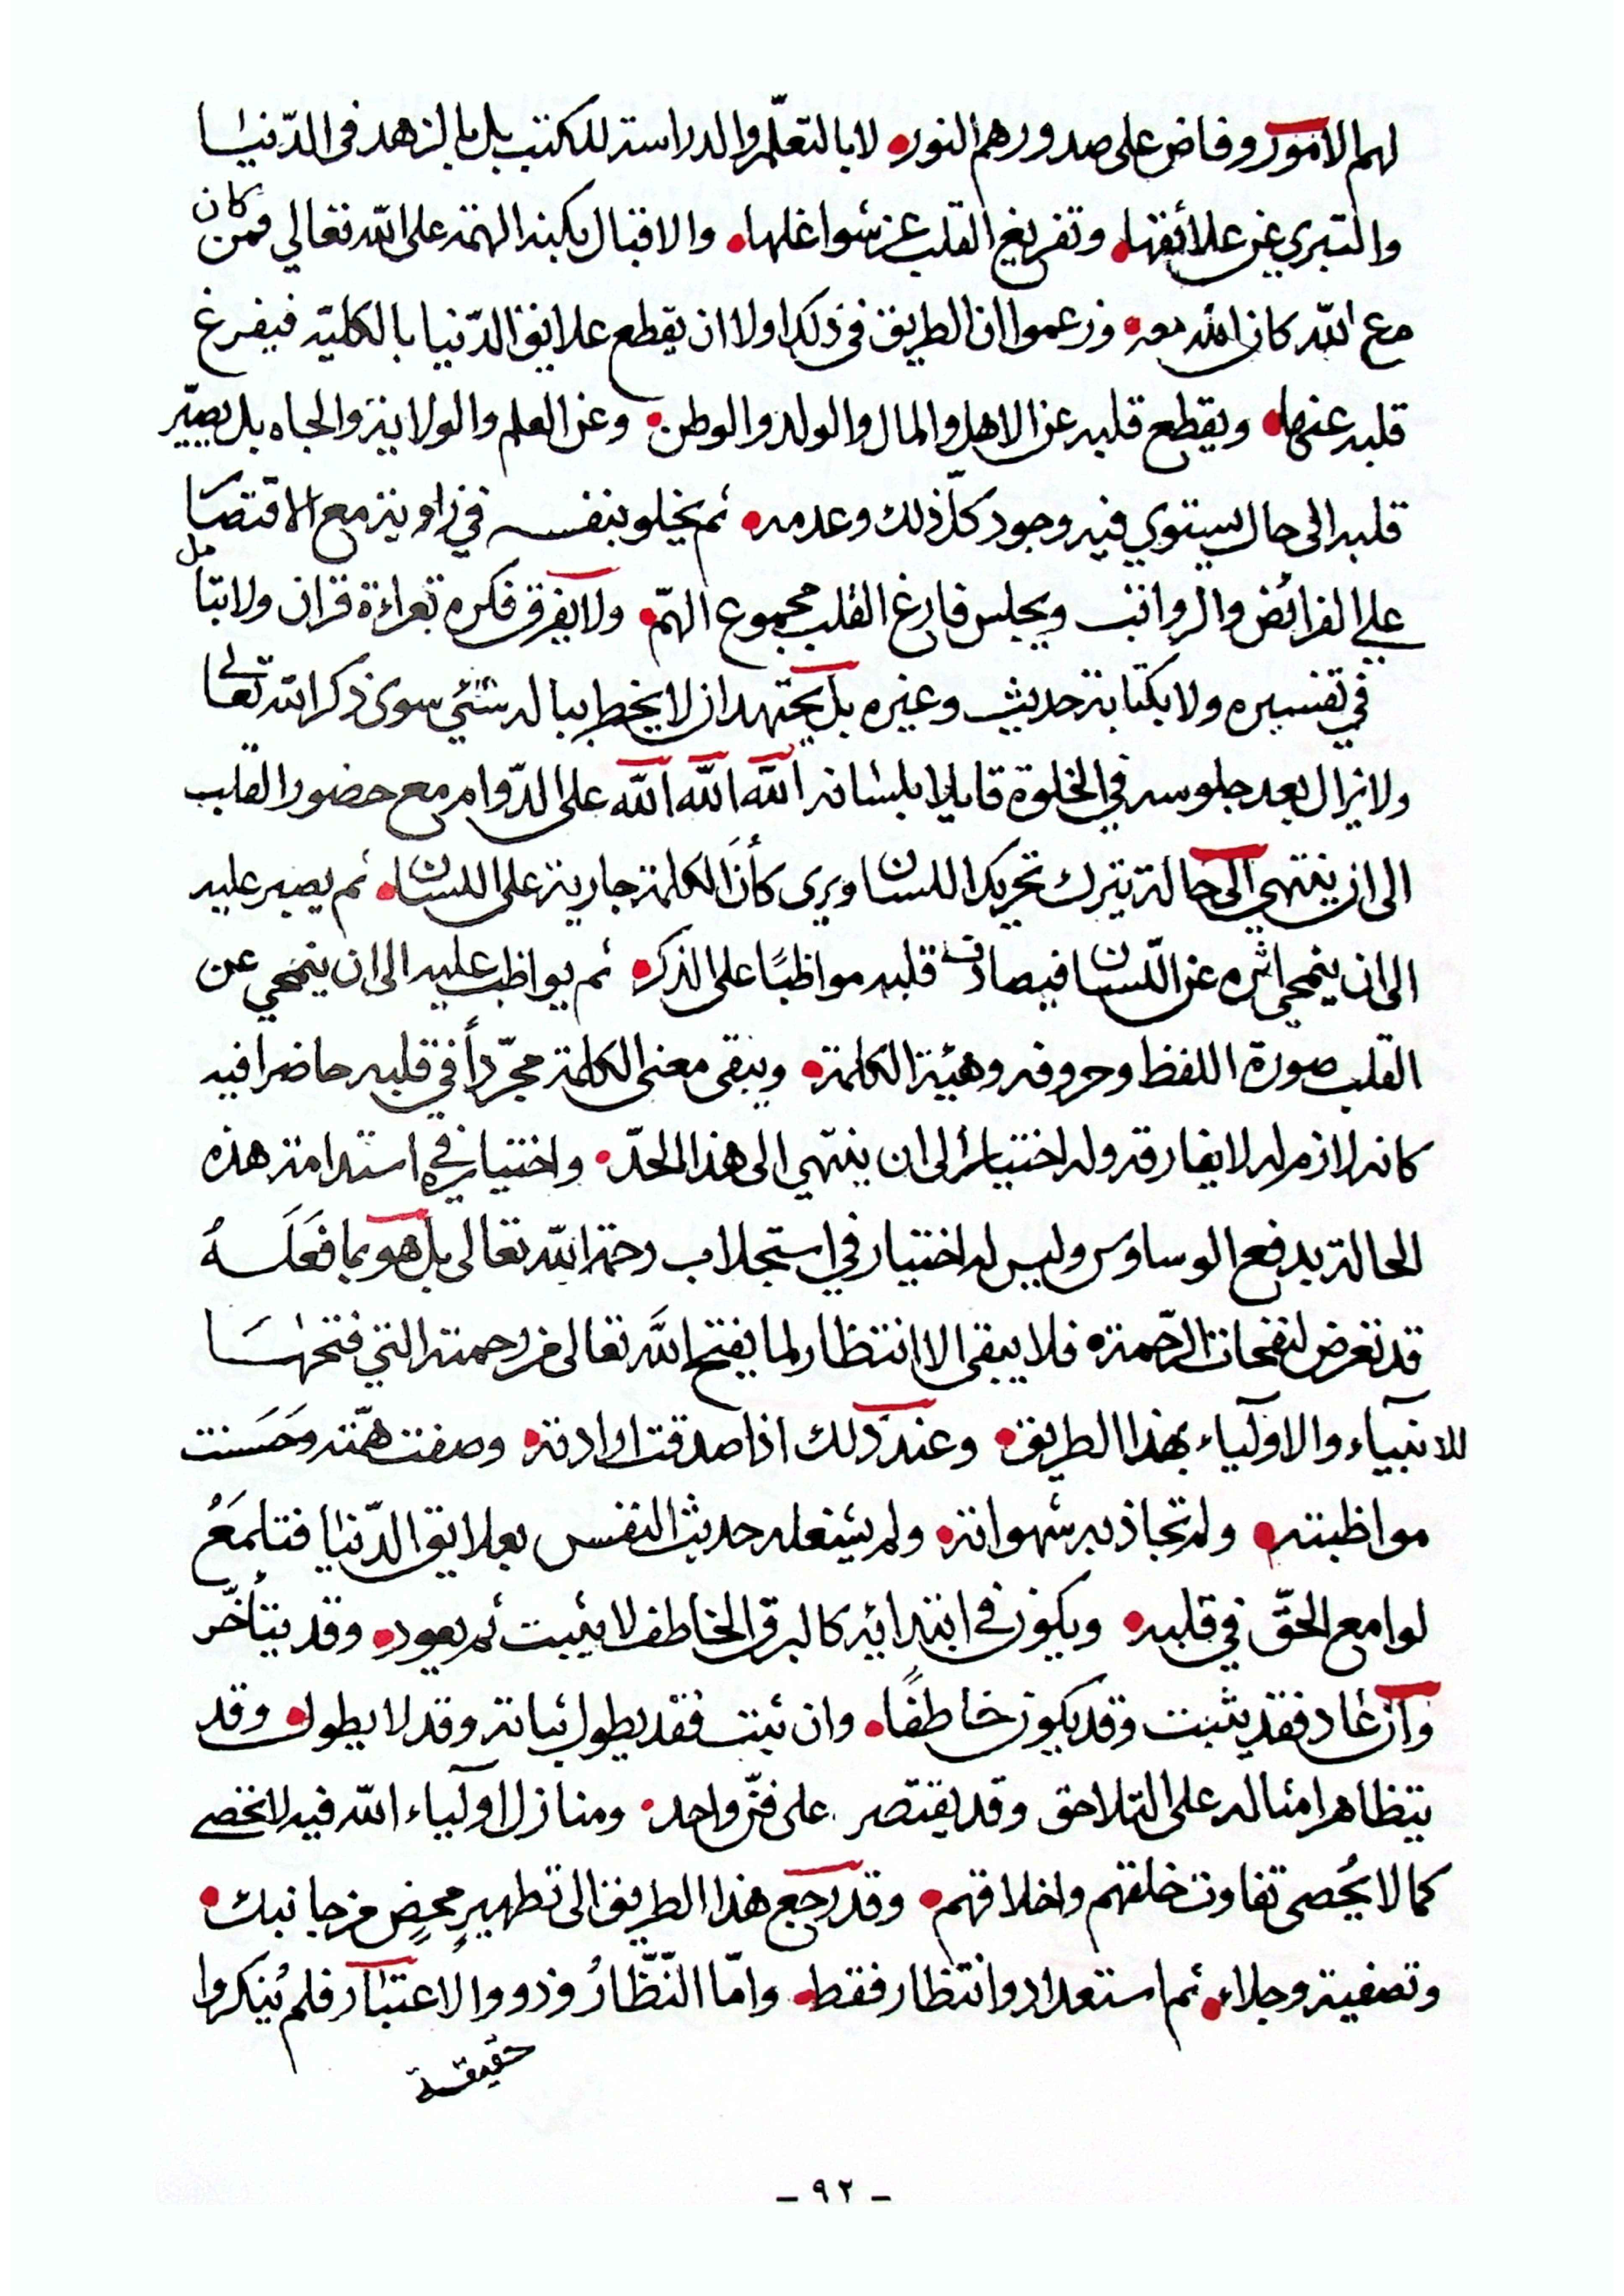 لهم الامور وفاض على صدورهم النور لا بالتعلّم والدراسة للكتب بل بالزهد في الدّنيا
والتبري عن علائقها وتفريغ القلب عن شواغلها والاقبال بكنه الهمة على الله تعالى فمن كان
مع الله كان الله معه وزعموا ان الطريق في ذلك اولا ان يقطع علايق الدّنيا بالكلية فيفرغ
قلبه عنها ويقطع قلبه عن الاهل والمال والولد والوطن وعن العلم والولاية والجاه بل يصيّر
قلبه الى حال يستوي فيه وجود كلّ ذلك وعدمه ثم يخلو بنفسه في زاوية مع الاقتصا
علي الفرائض والرواتب ويجلس فارغ القلب مجموع الهمّ ولا يفرق فكره بقراءة قران ولا بتأمل
في تفسيره ولا بكتابة حديث وغيره بل يجتهد ان لا يخطر بباله شئي سوى ذكر الله تعالى
ولا يزال بعد جلوسه في الخلوة قايلا بلسانه الله الله الله على الدّوام مع حضور القلب
الى ان ينتهي الى حالة يترك تحريك اللسان ويرى كأنّ الكلمة جارية على اللسان ثم يصبر عليه
الى ان ينمحي اثره عن اللّسان فيصادف قلبه مواظبًا على الذكر ثم يواظب عليه الى ان ينمحي عن
القلب صورة اللفظ وحروفه وهيئة الكلمة ويبقى معنى الكلمة مجرّداً في قلبه حاضرا فيه
كانه لازم له لا يفارقه وله اختيار الى ان ينتهي الى هذا الحدّ واختيار في استدامة هذه
الحالة بدفع الوساوس وليس له اختيار في استجلاب رحمة الله تعالى بل هو بما فَعَلَهُ
قد تعرض لنفحات الرّحمة فلا يبقى الا انتظار لما يفتح الله تعالى من رحمته التي فتحها
للانبيآء والاوليآء بهذا الطريق وعند ذلك اذا صدقت ارادته وصفت همّته وحَسَنت
مواظبته ولم تجاذبه شهواته ولم يشغله حديث النفس بعلايق الدّنيا فتلمَعُ
لوامع الحقّ في قلبه ويكون في ابتدائه كالبرق الخاطف لا يثبت ثم يعود وقد يتأخّر
وان عاد فقد يثبت وقد يكون خاطفًا وان ثبت فقد يطول ثباته وقد لا يطول وقد
يتظاهر امثاله على التلاحق وقد يقتصر على فنّ واحد ومنازل اوليآء الله فيه لا تحصى
كما لا يُحصى تفاوت خلقهم واخلاقهم وقد رجع هذا الطريق الى تطهيرٍ محضٍ من جانبك
وتصفية وجلاء ثم استعداد وانتظار فقط وامّا النّظّارُ وذووا الاعتبار فلم يُنكروا
حقيقة
- ٩٢ -